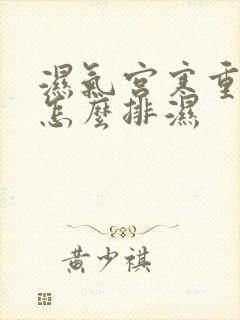 濕氣宮寒重
怎麼排濕
黃少祺